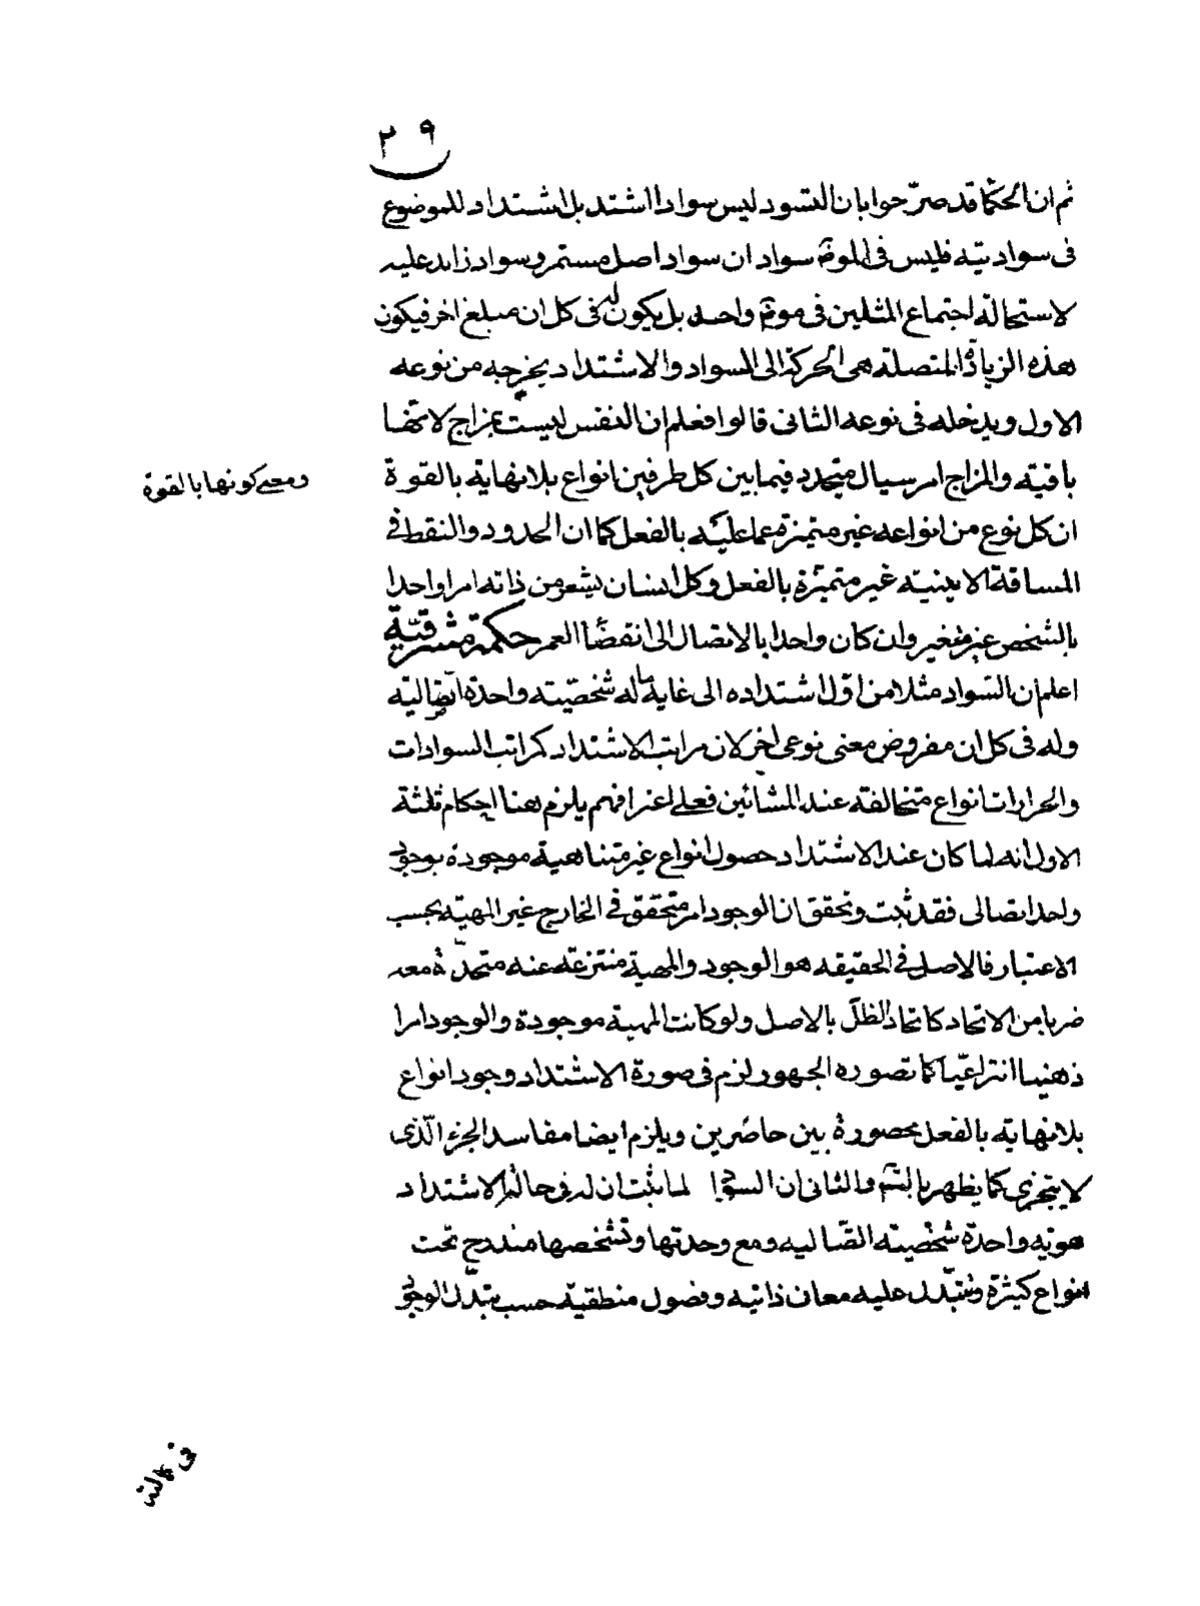 ٢٩
ثم ان الحكما قد صرّحوا بان التسود ليس سوادا اشتد بل اشتداد للموضوع
فى سواديته فليس فى الموضو سوادان سواد اصل مستمر وسواد زايد عليه
لاستحالة اجتماع المثلين فى موضو واحد بل يكون له فى كل ان مبلغ اخر فيكون
هذه الزيادة المتصلة هى الحركة الى السواد والاشتداد يخرجه من نوعه
الاول ويدخله فى نوعه الثانى قالوا فعلم ان النفس ليست بمزاج لانها
باقية والمزاج امر سيال متجدد فيما بين كل طرفين انواع بلا نهاية بالقوة
ومعنى كونها بالقوة
ان كل نوع من انواعه غير متميزة عما عليه بالفعل كما ان الحدود والنقط فى
المسافة الاينية غير متميزة بالفعل وكل انسان يشعر من ذاته امرا واحدا
بالشخص غير متغير وان كان واحدا بالاتصال الى انقضا العمر حكمة مشرقية
اعلم ان السواد مثلا من اول اشتداده الى غاية ما له شخصيته واحدة اتصالية
وله فى كل ان مفروض معنى نوعى اخر لان مراتب الاشتداد كمراتب السوادات
والحرارات انواع متخالفة عند المشائين فعلى اعترافهم يلزم هنا احكام ثلثة
الاول انه لما كان عند الاشتداد حصول انواع غير متناهية موجودة بوجود
واحد اتصالى فقد ثبت وتحقق ان الوجود امر متحقق فى الخارج غير المهية بحسب
الاعتبار فالاصل فى الحقيقه هو الوجود والمهية منتزعة عنه متحدة معه
ضربا من الاتحاد كاتحاد الظل بالاصل ولو كانت المهية موجودة والوجود امرا
ذهنيا انتزاعيّا كما تصوره الجمهور لزم فى صورة الاشتداد وجود انواع
بلا نهاية بالفعل محصورة بين حاصرين ويلزم ايضا مفاسد الجزء الّذى
لا يتجزى كما يظهر بالتم والثانى ان السوا لما ثبت ان له فى حالة الاشتداد
هوية واحدة شخصية اتّصاليه ومع وحدتها وتشخصها مندرج تحت
انواع كثيرة وتتبّدل عليه معان ذاتيه وفصول منطقية حسب تبدّل الوجود
فى كمالته